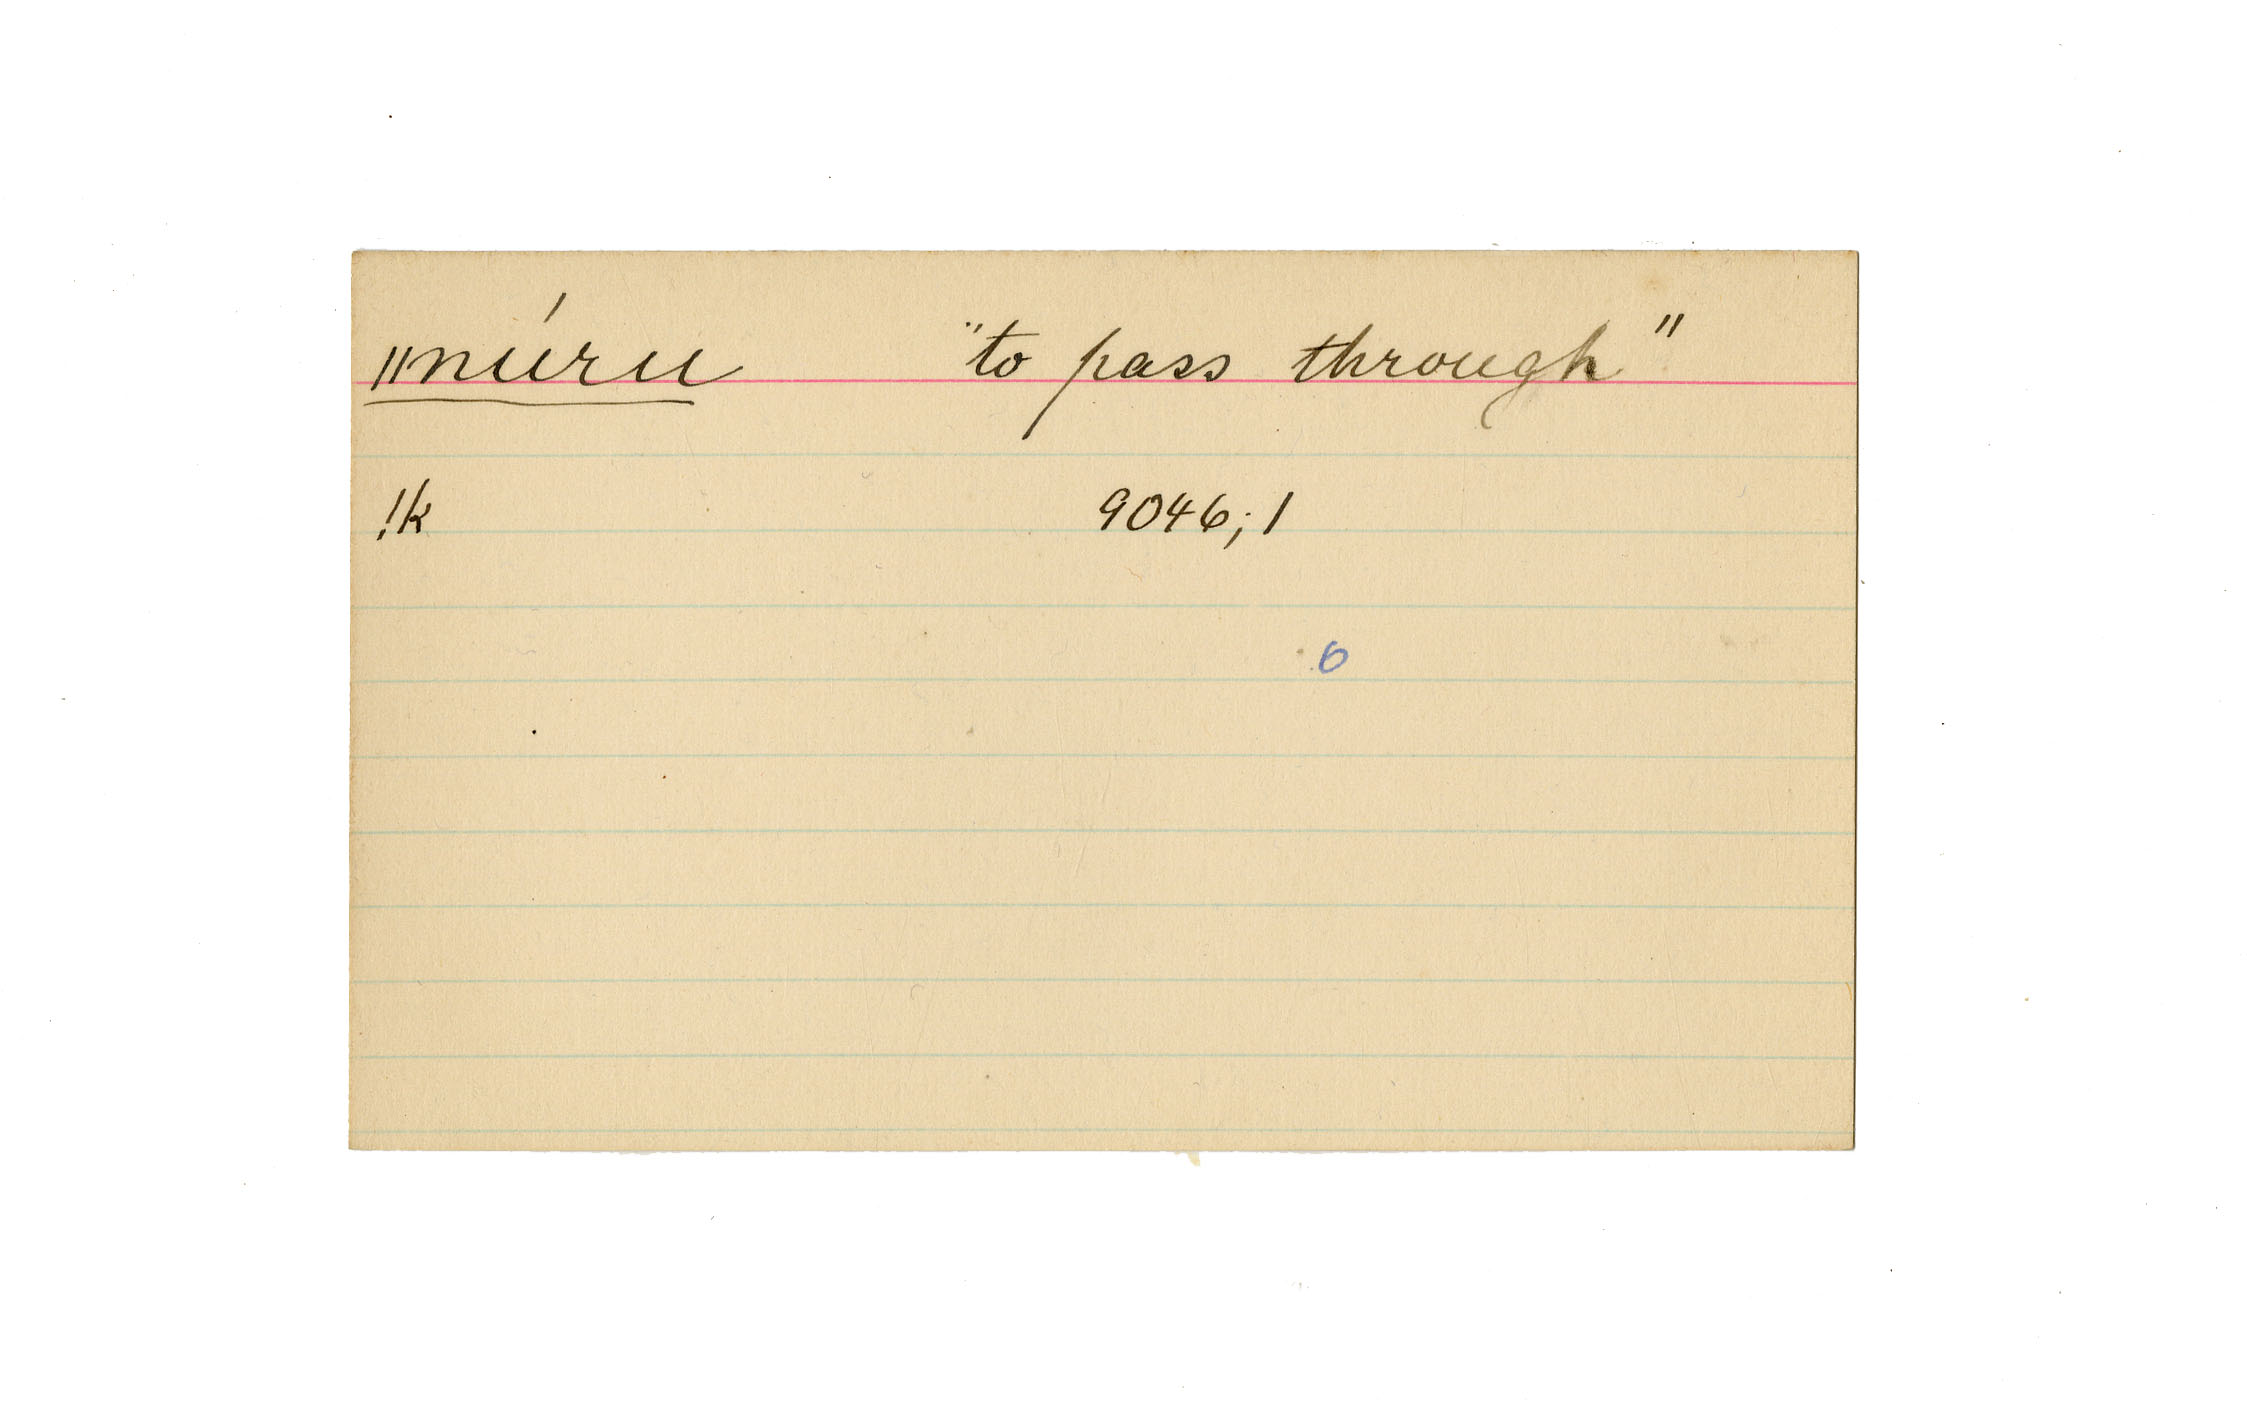 ǁnúru "to pass through"
!k 9046; 1
6